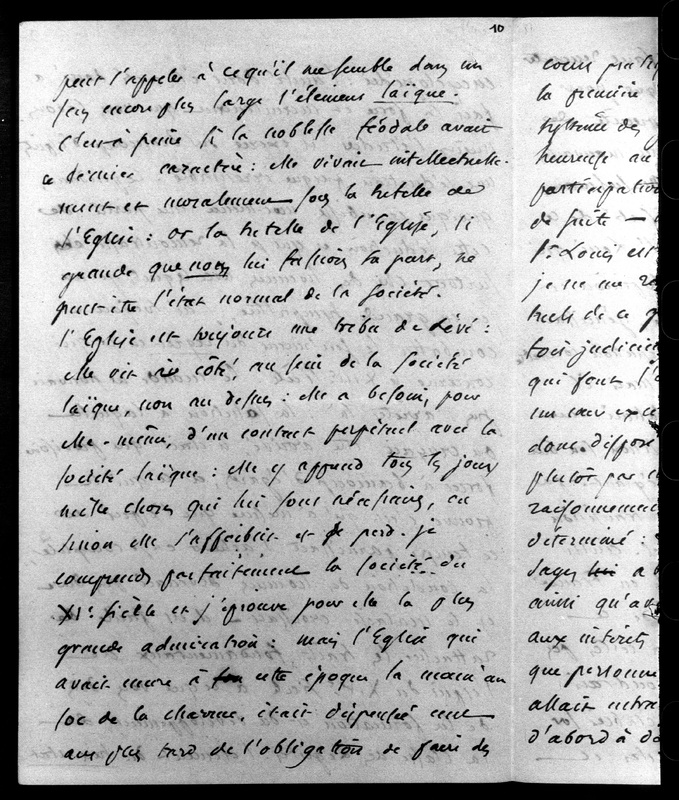 10
peut s'appeler à ce qu'il me semble dans un
sens encore plus large l'élément laïque.
C'est à peine si la noblesse féodale avait
ce dernier caractère : elle vivait intellectuelle-
ment et moralement sous la tutelle de
l'Eglise : or la tutelle de l'Eglise, si
grande que nous lui fassions sa part, ne
peut être l'état normal de la société.
l'Eglise est toujours une tribu de Lévi :
elle vit à côté, au sein de la société
laïque, non au dessus : elle a besoin, pour
elle-même, d'un contact perpétuel avec la
société laïque : elle y apprend tous les jours
mille choses qui lui sont nécessaires, ou
sinon elle s'affaiblit et se perd. je
comprends parfaitement la société du
XIe siècle et j'éprouve pour elle la plus
grande admiration : mais l'Eglise qui
avait encore à cette époque la main au
soc de la charrue, était dispensée cent
ans plus tard de l'obligation de faire des
la première
système des
heureuse au
participation
de suite —
St Louis est
je ne me
tuels de ce
toir judiciai
qui font l'
un cœur exce
donc disposé
plutôt par
raisonnement
déterminé :
sages a
ainsi qu'av
aux intérêts
que personne
allait
d'abord à